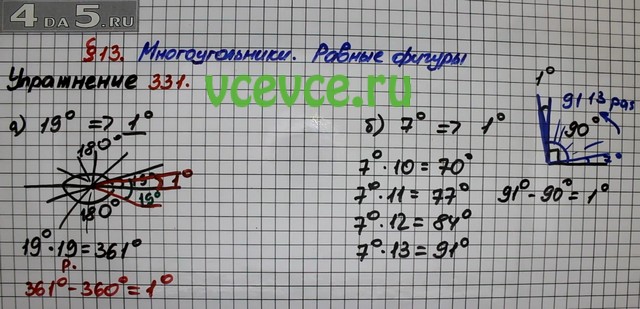 4 DA 5.RU
§13. Многоугольники. Равные фигуры
Упражнение 331.
vcevce.ru
а) 19° => 1°
180°
19° 1°
19°
180°
19° · 19 = 361°
р.
361° - 360° = 1°
б) 7° => 1°
7° · 10 = 70°
7° · 11 = 77°
7° · 12 = 84°
7° · 13 = 91°
1°
91 13 раз
90°
7°
91° - 90° = 1°